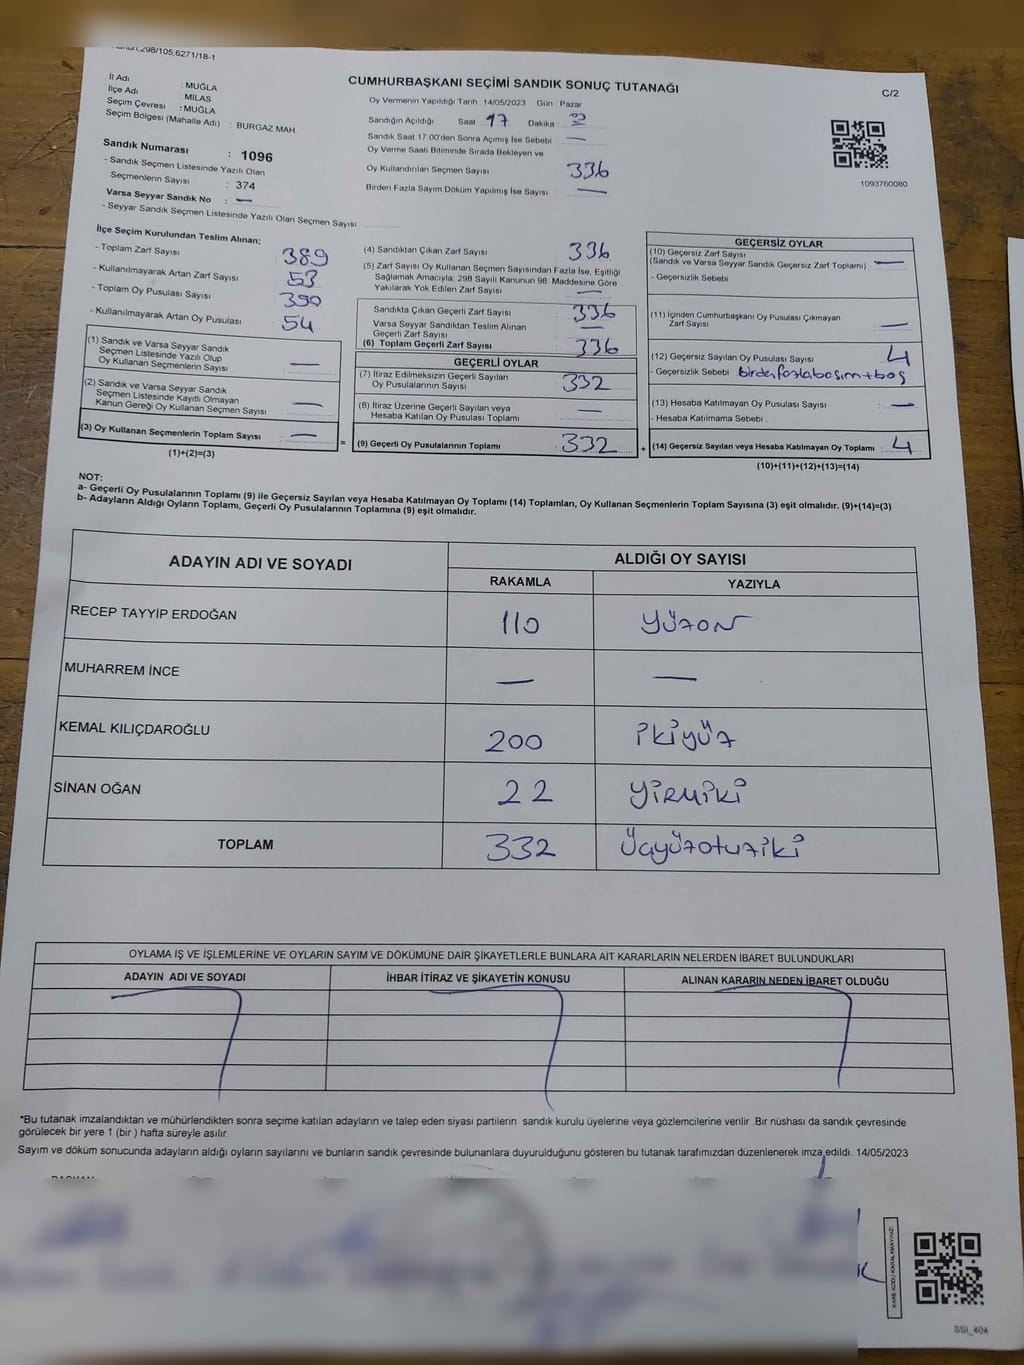 298/105,6271/18-1
CUMHURBAŞKANI SEÇİMİ SANDIK SONUÇ TUTANAĞI
C/2
İl Adı : MUĞLA
İlçe Adı : MİLAS
Seçim Çevresi : MUĞLA
Seçim Bölgesi (Mahalle Adı) : BURGAZ MAH.
Oy Vermenin Yapıldığı Tarih : 14/05/2023 Gün : Pazar
Sandığın Açıldığı Saat 17 Dakika :
Sandık Saat 17:00'den Sonra Açımış İse Sebebi : —
Oy Verme Saati Bitiminde Sırada Bekleyen ve
Oy Kullandırılan Seçmen Sayısı : 336
Birden Fazla Sayım Döküm Yapılmış İse Sayısı : —
1093760080
Sandık Numarası : 1096
- Sandık Seçmen Listesinde Yazılı Olan
Seçmenlerin Sayısı : 374
Varsa Seyyar Sandık No : —
- Seyyar Sandık Seçmen Listesinde Yazılı Olan Seçmen Sayısı:
İlçe Seçim Kurulundan Teslim Alınan;
- Toplam Zarf Sayısı : 389
- Kullanılmayarak Artan Zarf Sayısı : 53
- Toplam Oy Pusulası Sayısı : 390
- Kullanılmayarak Artan Oy Pusulası : 54
(1) Sandık ve Varsa Seyyar Sandık
Seçmen Listesinde Yazılı Olup
Oy Kullanan Seçmenlerin Sayısı : —
(2) Sandık ve Varsa Seyyar Sandık
Seçmen Listesinde Kayıtlı Olmayan
Kanun Gereği Oy Kullanan Seçmen Sayısı : —
(3) Oy Kullanan Seçmenlerin Toplam Sayısı : —
(1)+(2)=(3)
(4) Sandıktan Çıkan Zarf Sayısı : 336
(5) Zarf Sayısı Oy Kullanan Seçmen Sayısından Fazla İse, Eşitliği
Sağlamak Amacıyla, 298 Sayılı Kanunun 98. Maddesine Göre
Yakılarak Yok Edilen Zarf Sayısı : —
Sandıkta Çıkan Geçerli Zarf Sayısı : 336
Varsa Seyyar Sandıktan Teslim Alınan
Geçerli Zarf Sayısı : —
(6) Toplam Geçerli Zarf Sayısı : 336
GEÇERLİ OYLAR
(7) İtiraz Edilmeksizin Geçerli Sayılan
Oy Pusulalarının Sayısı : 332
(8) İtiraz Üzerine Geçerli Sayılan veya
Hesaba Katılan Oy Pusulası Toplamı : —
= (9) Geçerli Oy Pusulalarının Toplamı : 332
GEÇERSİZ OYLAR
(10) Geçersiz Zarf Sayısı
(Sandık ve Varsa Seyyar Sandık Geçersiz Zarf Toplamı) : —
- Geçersizlik Sebebi :
(11) İçinden Cumhurbaşkanı Oy Pusulası Çıkmayan
Zarf Sayısı : —
(12) Geçersiz Sayılan Oy Pusulası Sayısı : 4
- Geçersizlik Sebebi : birden fazla basım + boş
(13) Hesaba Katılmayan Oy Pusulası Sayısı : —
- Hesaba Katılmama Sebebi :
+ (14) Geçersiz Sayılan veya Hesaba Katılmayan Oy Toplamı : 4
(10)+(11)+(12)+(13)=(14)
NOT:
a- Geçerli Oy Pusulalarının Toplamı (9) ile Geçersiz Sayılan veya Hesaba Katılmayan Oy Toplamı (14) Toplamları, Oy Kullanan Seçmenlerin Toplam Sayısına (3) eşit olmalıdır. (9)+(14)=(3)
b- Adayların Aldığı Oyların Toplamı, Geçerli Oy Pusulalarının Toplamına (9) eşit olmalıdır.
ADAYIN ADI VE SOYADI ALDIĞI OY SAYISI
RAKAMLA YAZIYLA
RECEP TAYYİP ERDOĞAN 110 YÜZON
MUHARREM İNCE — —
KEMAL KILIÇDAROĞLU 200 İKİYÜZ
SİNAN OĞAN 22 YİRMİKİ
TOPLAM 332 Üçyüzotuziki
OYLAMA İŞ VE İŞLEMLERİNE VE OYLARIN SAYIM VE DÖKÜMÜNE DAİR ŞİKAYETLERLE BUNLARA AİT KARARLARIN NELERDEN İBARET BULUNDUKLARI
ADAYIN ADI VE SOYADI İHBAR İTİRAZ VE ŞİKAYETİN KONUSU ALINAN KARARIN NEDEN İBARET OLDUĞU
*Bu tutanak imzalandıktan ve mühürlendikten sonra seçime katılan adayların ve talep eden siyasi partilerin sandık kurulu üyelerine veya gözlemcilerine verilir. Bir nüshası da sandık çevresinde
görülecek bir yere 1 (bir ) hafta süreyle asılır.
Sayım ve döküm sonucunda adayların aldığı oyların sayılarını ve bunların sandık çevresinde bulunanlara duyurulduğunu gösteren bu tutanak tarafımızdan düzenlenerek imza edildi. 14/05/2023
KARE KODU KARALAMAYINIZ!
SSI_404